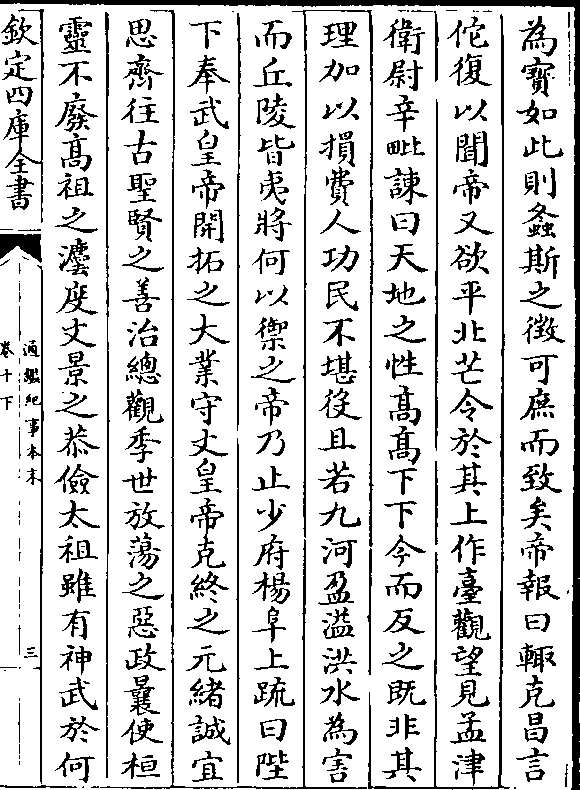 為寳如此則螽斯之徴可庶而致矣帝報曰輙克昌言
佗復以聞帝又欲平北芒令於其上作臺觀望見孟津
衛尉辛毗諫曰天地之性髙髙下下今而反之既非其
理加以損費人功民不堪役且若九河盈溢洪水為害
而丘陵皆夷將何以禦之帝乃止少府楊阜上疏曰陛
下奉武皇帝開拓之大業守文皇帝克終之元緒誠宜
思齊往古聖賢之善治總觀季世放蕩之惡政曩使桓
靈不廢髙祖之灋度文景之恭儉太祖雖有神武於何
欽定四庫全書
通鑑紀事本末
卷十下
三